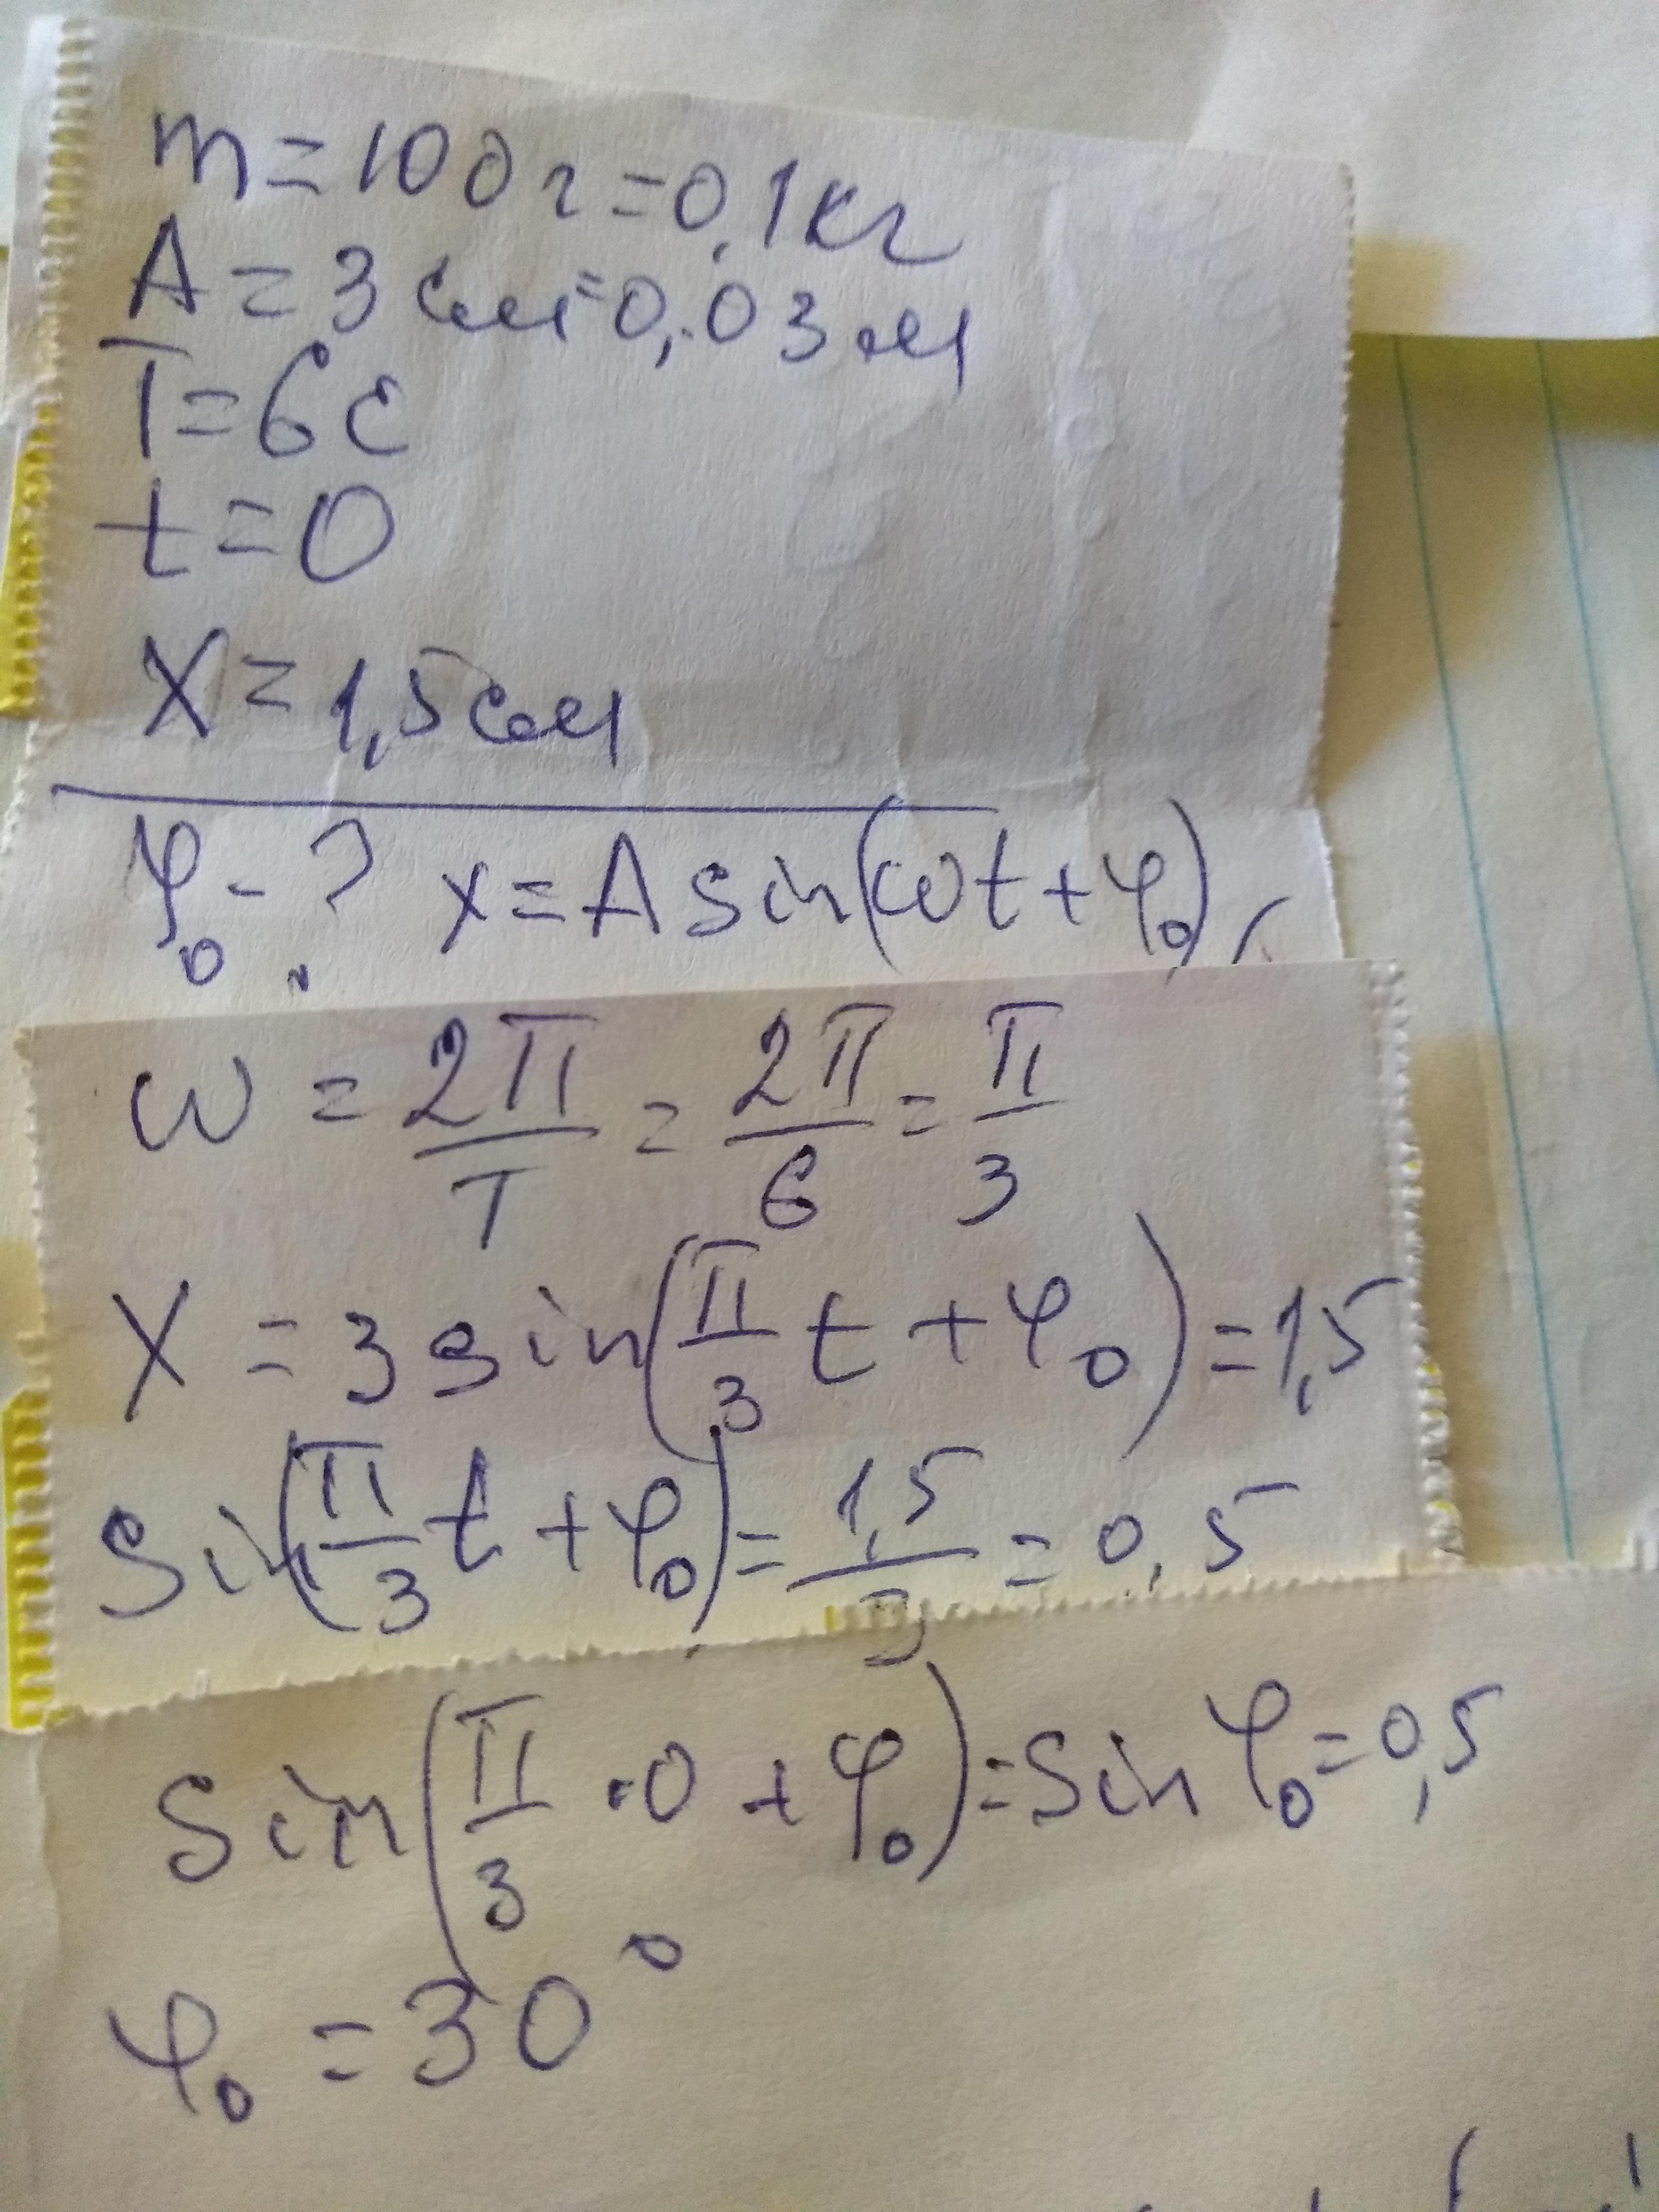 m = 100 г = 0,1 кг
A = 3 см = 0,03 м
T = 6 с
t = 0
X = 1,5 см
φ₀ - ? x = A sin(ωt + φ₀),
ω = 2π/T = 2π/6 = π/3
X = 3 sin(π/3 t + φ₀) = 1,5
Sin(π/3 t + φ₀) = 1,5/3 = 0,5
Sin(π/3 · 0 + φ₀) = Sin φ₀ = 0,5
φ₀ = 30°